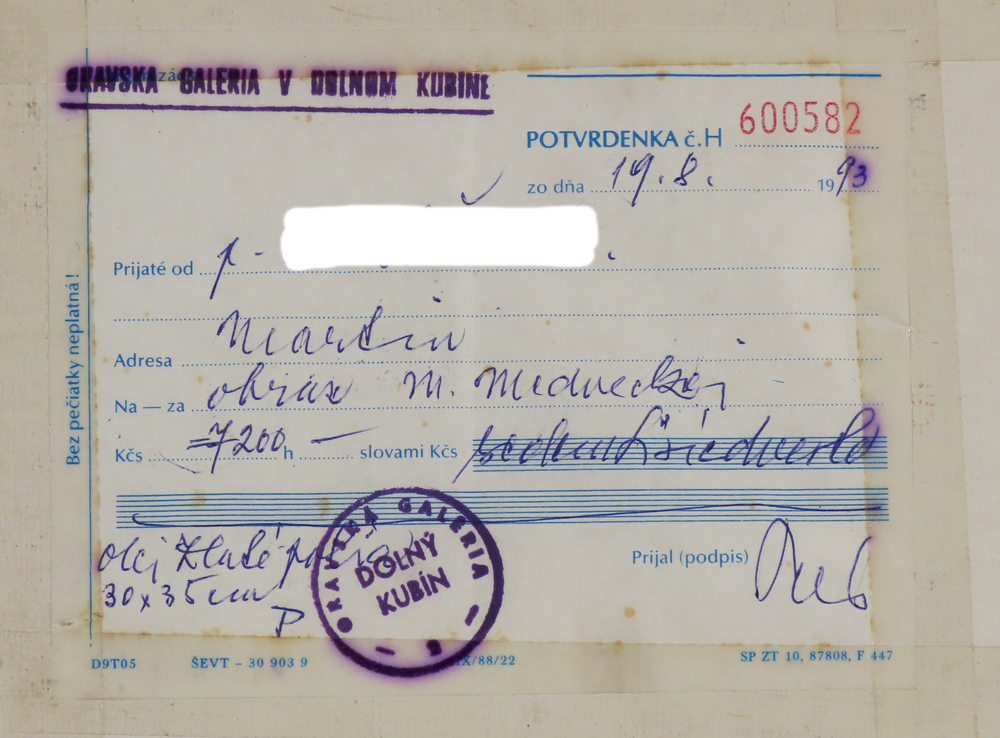 ORAVSKA GALERIA V DOLNOM KUBINE
POTVRDENKA č. H 600582
zo dňa 19. 8. 1993
Prijaté od p.
Adresa Martin
Na — za obraz M. Medveckej
Kčs =7200 h — slovami Kčs sedemtisícdvesto
olej Zlaté
30 x 35 cm
P
ORAVSKÁ GALÉRIA
DOLNÝ
KUBÍN
2
Prijal (podpis)
Bez pečiatky neplatná!
D9T05 ŠEVT – 30 903 9 IX/88/22 SP ZT 10, 87808, F 447